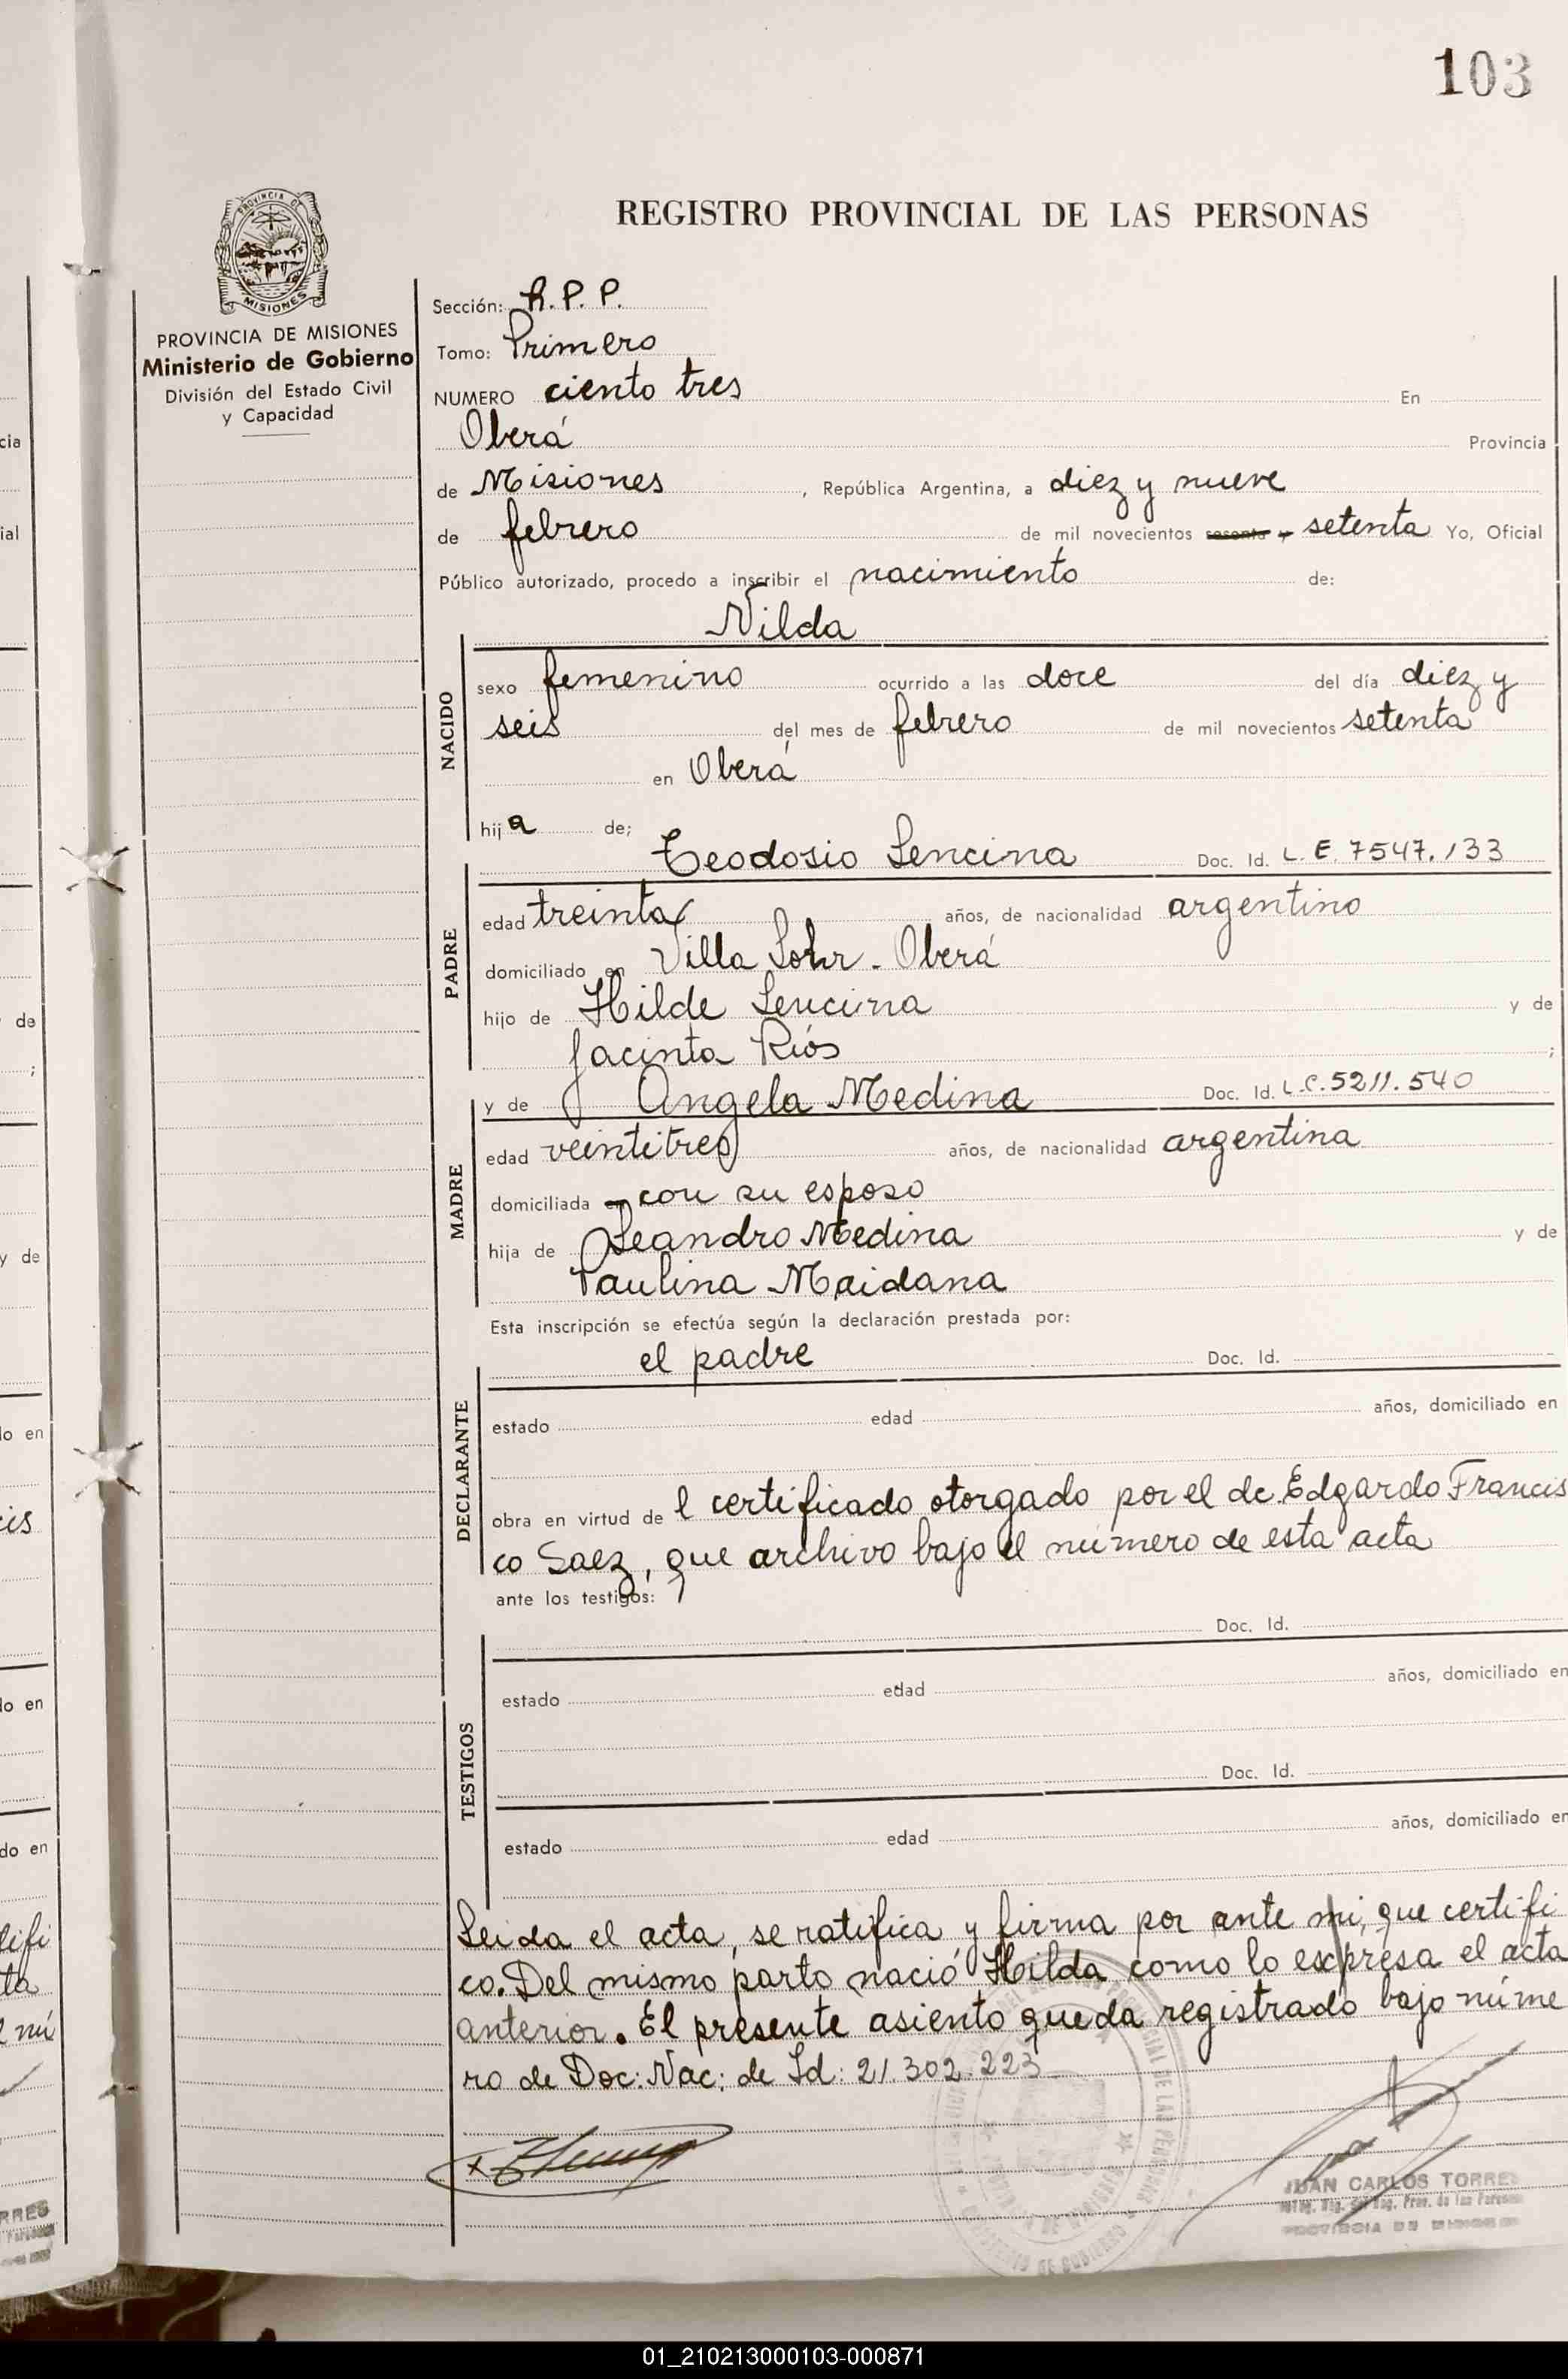 103
REGISTRO PROVINCIAL DE LAS PERSONAS
PROVINCIA DE
MISIONES
PROVINCIA DE MISIONES
Ministerio de Gobierno
División del Estado Civil
y Capacidad
Sección: R. P. P.
Tomo: Primero
NUMERO ciento tres En
Oberá Provincia
de Misiones, República Argentina, a diez y nueve
de febrero de mil novecientos sesenta y setenta Yo, Oficial
Público autorizado, procedo a inscribir el nacimiento de:
Nilda
NACIDO
sexo femenino ocurrido a las doce del día diez y
seis del mes de febrero de mil novecientos setenta
en Oberá
hija de;
PADRE
Teodosio Lencina Doc. Id. L. E. 7547.133
edad treinta años, de nacionalidad argentino
domiciliado en Villa Lohr - Oberá
hijo de Hilde Lencina y de
Jacinta Riós ;
MADRE
y de Angela Medina Doc. Id. L.C. 5211.540
edad veintitres años, de nacionalidad argentina
domiciliada con su esposo
hija de Leandro Medina y de
Paulina Maidana
Esta inscripción se efectúa según la declaración prestada por:
el padre Doc. Id.
DECLARANTE
estado edad años, domiciliado en
obra en virtud de l certificado otorgado por el dr. Edgardo Francis
co Saez, que archivo bajo el número de esta acta
ante los testigos:
Doc. Id.
TESTIGOS
estado edad años, domiciliado en
Doc. Id.
estado edad años, domiciliado en
Leida el acta, se ratifica y firma por ante mi, que certifi
co. Del mismo parto nació Hilda como lo expresa el acta
anterior. El presente asiento queda registrado bajo núme
ro de Doc: Nac: de Id: 21.302.223
JUAN CARLOS TORRES
PROVINCIA DE MISIONES
01_210213000103-000871